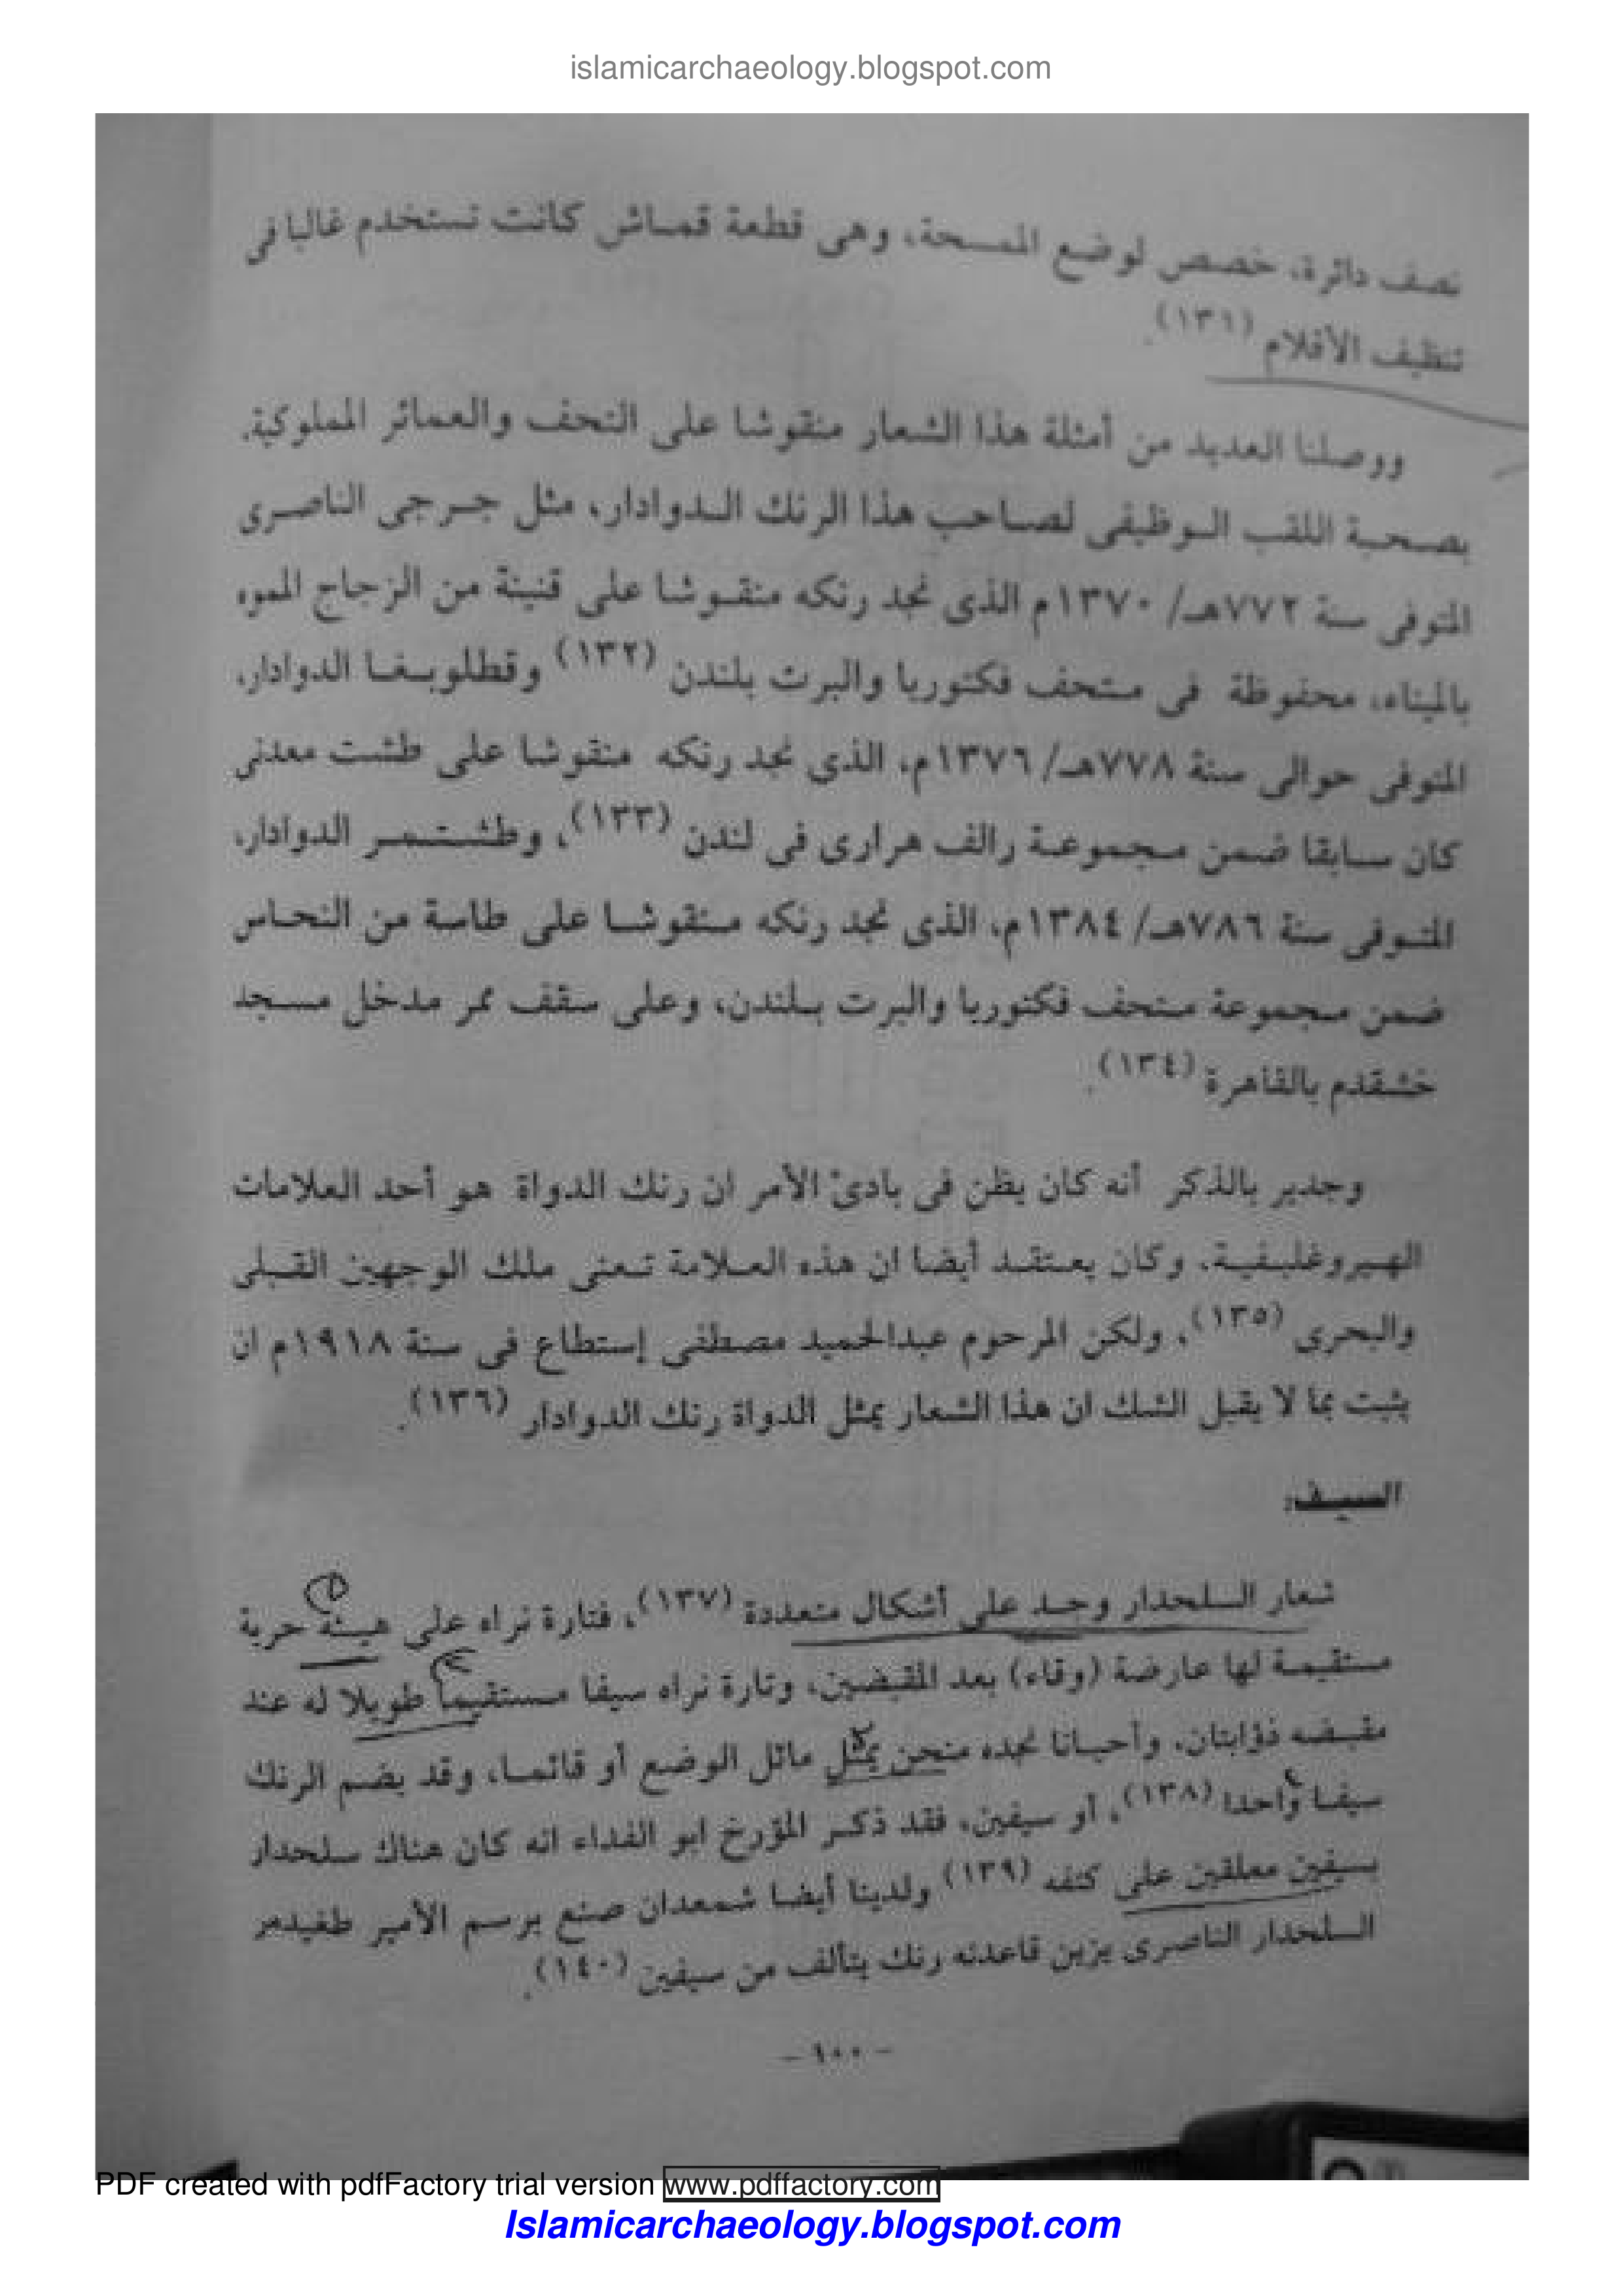 islamicarchaeology.blogspot.com
نصف دائرة، خصص لوضع الممسحة، وهى قطعة قمـاش كانت تستخدم غالبا فى
تنظيف الأقلام (١٣١).
ووصلنا العديد من أمثلة هذا الشعار منقوشا على التحف والعمائر المملوكية.
بصـحبـة اللقب الـوظيفى لصـاحب هذا الرنك الـدوادار، مثل جـرجى الناصـرى
المتوفى سنة ٧٧٢هـ/ ١٣٧٠م الذى نجد رنكه منقـوشا على قنينة من الزجاج المموه
بالميناء، محفوظة فى متحف فكتوريا والبرت بلندن (١٣٢) وقطلوبـغـا الدوادار،
المتوفى حوالى سنة ٧٧٨هـ/ ١٣٧٦م، الذى نجد رنكه منقوشا على طشت معدنى
كان سـابقا ضمن مـجموعـة رالف هرارى فى لندن (١٣٣)، وطشـتـمـر الدوادار،
المتـوفى سنة ٧٨٦هـ/ ١٣٨٤م، الذى نجد رنكه منقوشـا على طاسة من النحـاس
ضمن مجموعة متحف فكتوريا والبرت بـلندن، وعلى سقف ممر مدخل مسـجد
خشقدم بالقاهرة (١٣٤).
وجدير بالذكر أنه كان يظن فى بادئ الأمر ان رنك الدواة هو أحد العلامات
الهـيروغلـيفيـة، وكان يعـتقـد أيضا ان هذه العـلامة تـعنى ملك الوجهين القـبلى
والبحرى (١٣٥)، ولكن المرحوم عبدالحميد مصطفى إستطاع فى سنة ١٩١٨م ان
يثبت بما لا يقبل الشك ان هذا الشعار يمثل الدواة رنك الدوادار (١٣٦).
السيـف:
شعار السـلحدار وجـد على أشكال متعددة (١٣٧)، فتارة نراه على هيـئة حربة
مستقيمـة لها عارضة (وقاء) بعد المقبضين، وتارة نراه سيفا مستقيما طويلا له عند
مقبـضه ذؤابتان، وأحيـانا نجده منحن يمثل مائل الوضع أو قائمـا، وقد يضم الرنك
سيفـا واحدا (١٣٨)، أو سيفين، فقد ذكـر المؤرخ ابو الفداء انه كان هناك سلحدار
بسيفين معلقين على كتفه (١٣٩) ولدينا أيضـا شمعدان صنع برسم الأمير طغيدمر
السـلحدار الناصرى يزين قاعدته رنك يتألف من سيفين (١٤٠).
– ١٠٠ –
PDF created with pdfFactory trial version www.pdffactory.com
Islamicarchaeology.blogspot.com